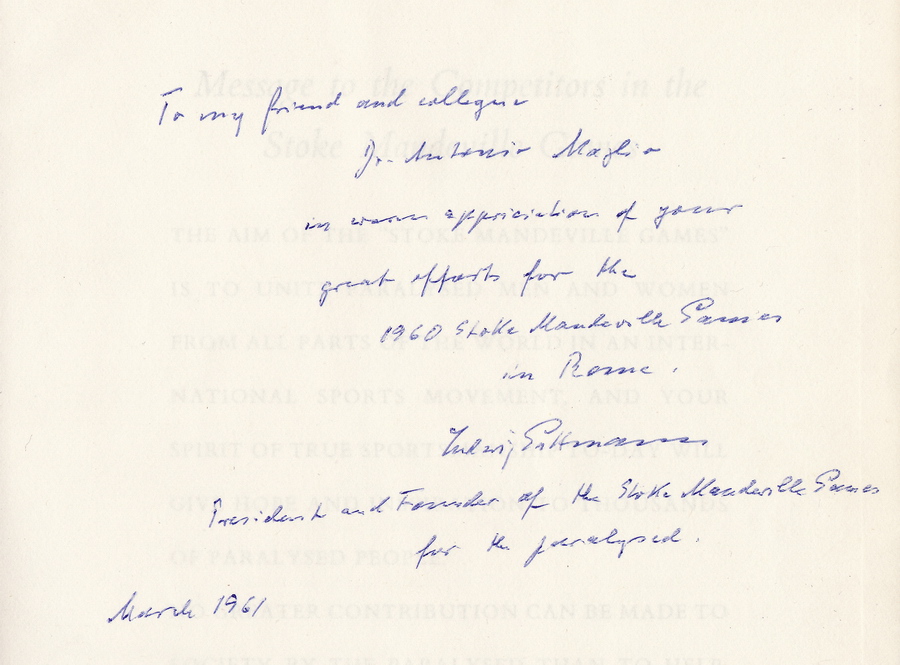 Message to the Competitors in the
To my friend and collegue
Stoke Mandeville Games
Dr. Antonio Maglio
in warm appriciation of your
THE AIM OF THE "STOKE MANDEVILLE GAMES"
great efforts for the
IS TO UNITE PARALYSED MEN AND WOMEN
1960 Stoke Mandeville Games
FROM ALL PARTS OF THE WORLD IN AN INTER-
in Rome.
NATIONAL SPORTS MOVEMENT, AND YOUR
Ludwig Guttmann
SPIRIT OF TRUE SPORTSMANSHIP TO-DAY WILL
President and Founder of the Stoke Mandeville Games
GIVE HOPE AND INSPIRATION TO THOUSANDS
for the paralysed.
OF PARALYSED PEOPLE.
March 1961
NO GREATER CONTRIBUTION CAN BE MADE TO
SOCIETY BY THE PARALYSED THAN TO HELP